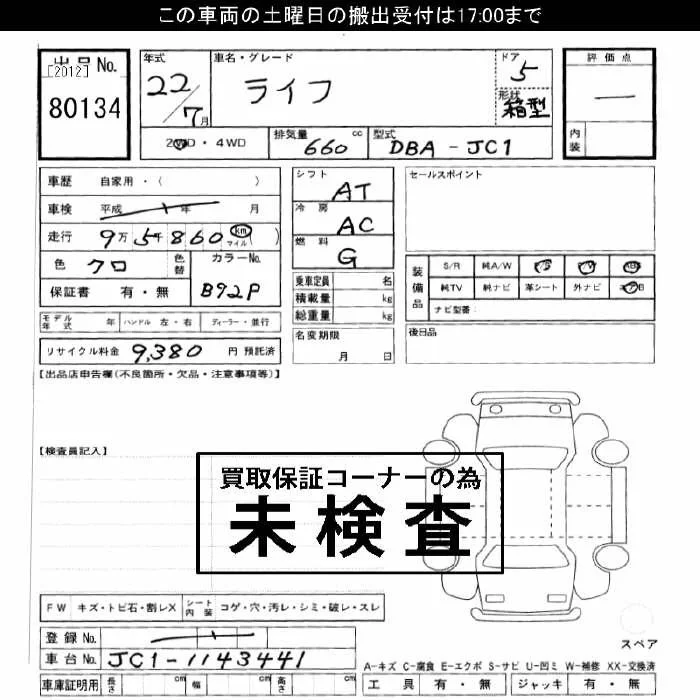 この車両の土曜日の搬出受付は17:00まで
出品No.
[2012]
80134
年式
22/7月
車名・グレード
ライフ
ドア
5
形状
箱型
評価点
―
内装
2WD・4WD
排気量 660 cc
型式 DBA-JC1
車歴 自家用・( )
車検 平成 年 月
走行 9万5千860 km マイル ( )
色 クロ
色替
カラーNo.
B92P
保証書 有・無
モデル年式 年 ハンドル 左・右 ディーラー・並行
リサイクル料金 9,380 円 預託済
シフト AT
冷房 AC
燃料 G
乗車定員 名
積載量 kg
総重量 kg
名変期限
月 日
セールスポイント
装備品
S/R 純A/W
純TV 純ナビ 革シート 外ナビ
ナビ型番
後日品
【出品店申告欄(不良箇所・欠品・注意事項等)】
【検査員記入】
買取保証コーナーの為
未検査
FW キズ・トビ石・割レX シート内装 コゲ・穴・汚レ・シミ・破レ・スレ
登録No.
車台No. JC1-1143441
車庫証明用 長さ cm 幅 cm 高さ cm
スペア
A-キズ C-腐食 E-エクボ S-サビ U-凹ミ W-補修 XX-交換済
工具 有・無 ジャッキ 有・無